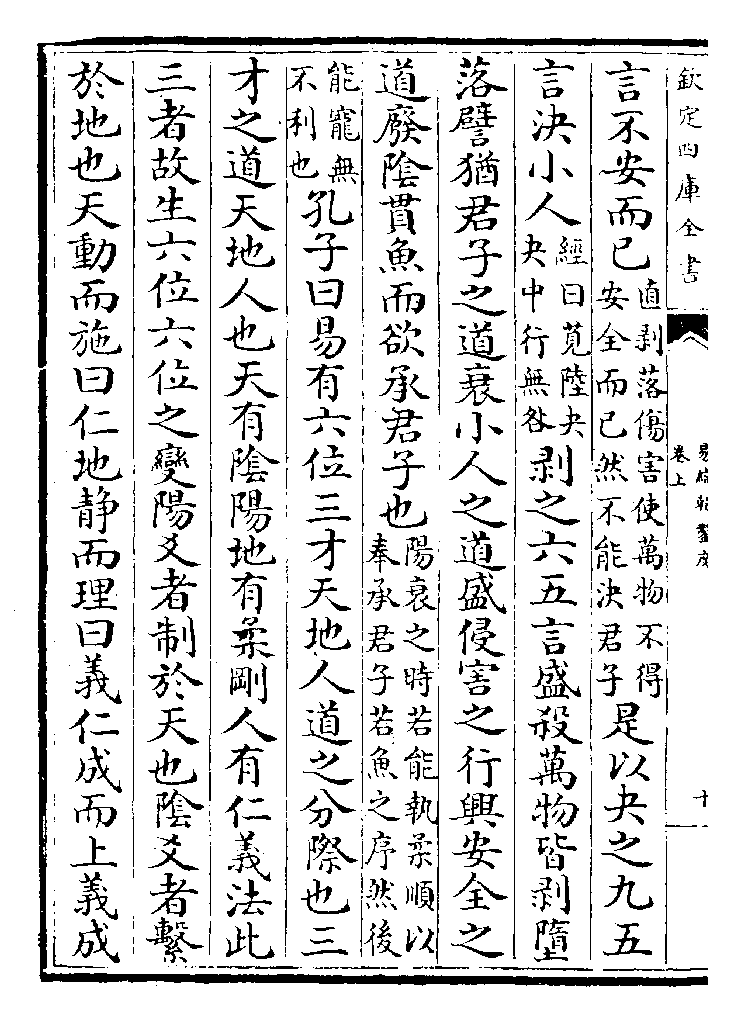 欽定四庫全書
易緯乾鑿度
卷上
十
言不安而已直剥落傷害使萬物不得安全而已然不能決君子是以夬之九五
言決小人經曰莧陸夬夬中行無咎剥之六五言盛殺萬物皆剥墮
落譬猶君子之道衰小人之道盛侵害之行興安全之
道廢陰貫魚而欲承君子也陽衰之時若能執柔順以奉承君子若魚之序然後
能寵無不利也孔子曰易有六位三才天地人道之分際也三
才之道天地人也天有陰陽地有柔剛人有仁義法此
三者故生六位六位之變陽爻者制於天也陰爻者繫
於地也天動而施曰仁地静而理曰義仁成而上義成